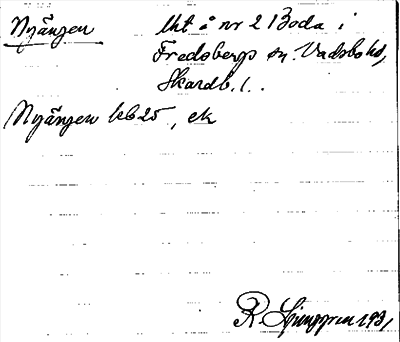 Nyängen
Uht å nr 2 Boda i
Fredsbergs sn. Vadsbo hd,
Skarab. l.
Nyängen kb 25, ek
R. Ljunggren 1931